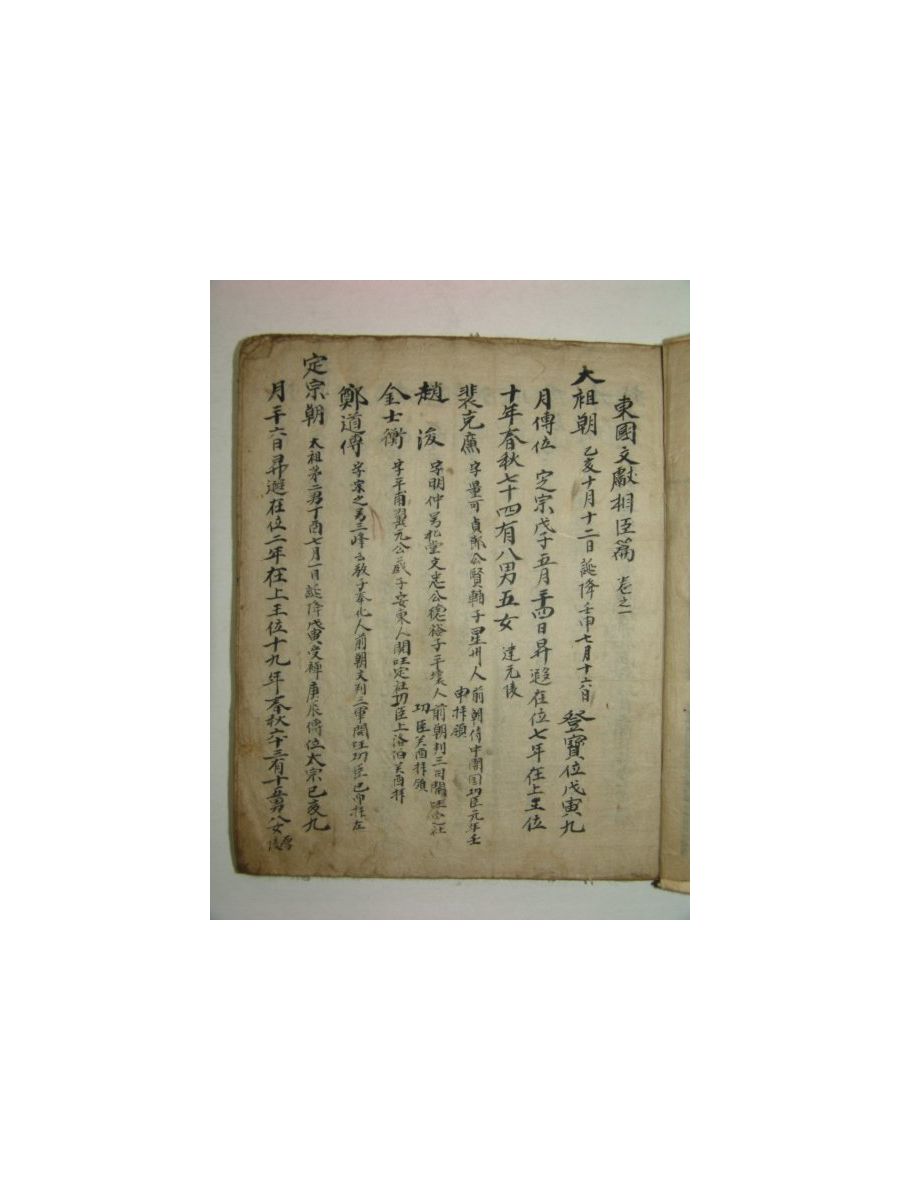 東國文獻相臣篇 卷之一
太祖朝 乙亥十月十二日誕降壬申七月十六日登寶位戊寅九
月傳位 定宗戊子五月二十四日昇遐在位七年在上王位
十年春秋七十四有八男五女 建元陵
裴克廉 字量可貞節公賢輔子星州人前朝侍中開国功臣元年壬
申拜領
趙浚 字明仲号松堂文忠公德裕子平壤人前朝判三司開国定社
功臣癸酉拜領
金士衡 字平甫翼元公蕆子安東人開国定社功臣上洛伯癸酉拜
鄭道傳 字宗之号三峰云敬子奉化人前朝文判三軍開国功臣 拜左
定宗朝 太祖第二男丁酉七月一日誕降戊寅受禪庚辰傳位太宗己亥九
月二十六日昇遐在位二年在上王位十九年春秋六十三有十五男八女 厚陵